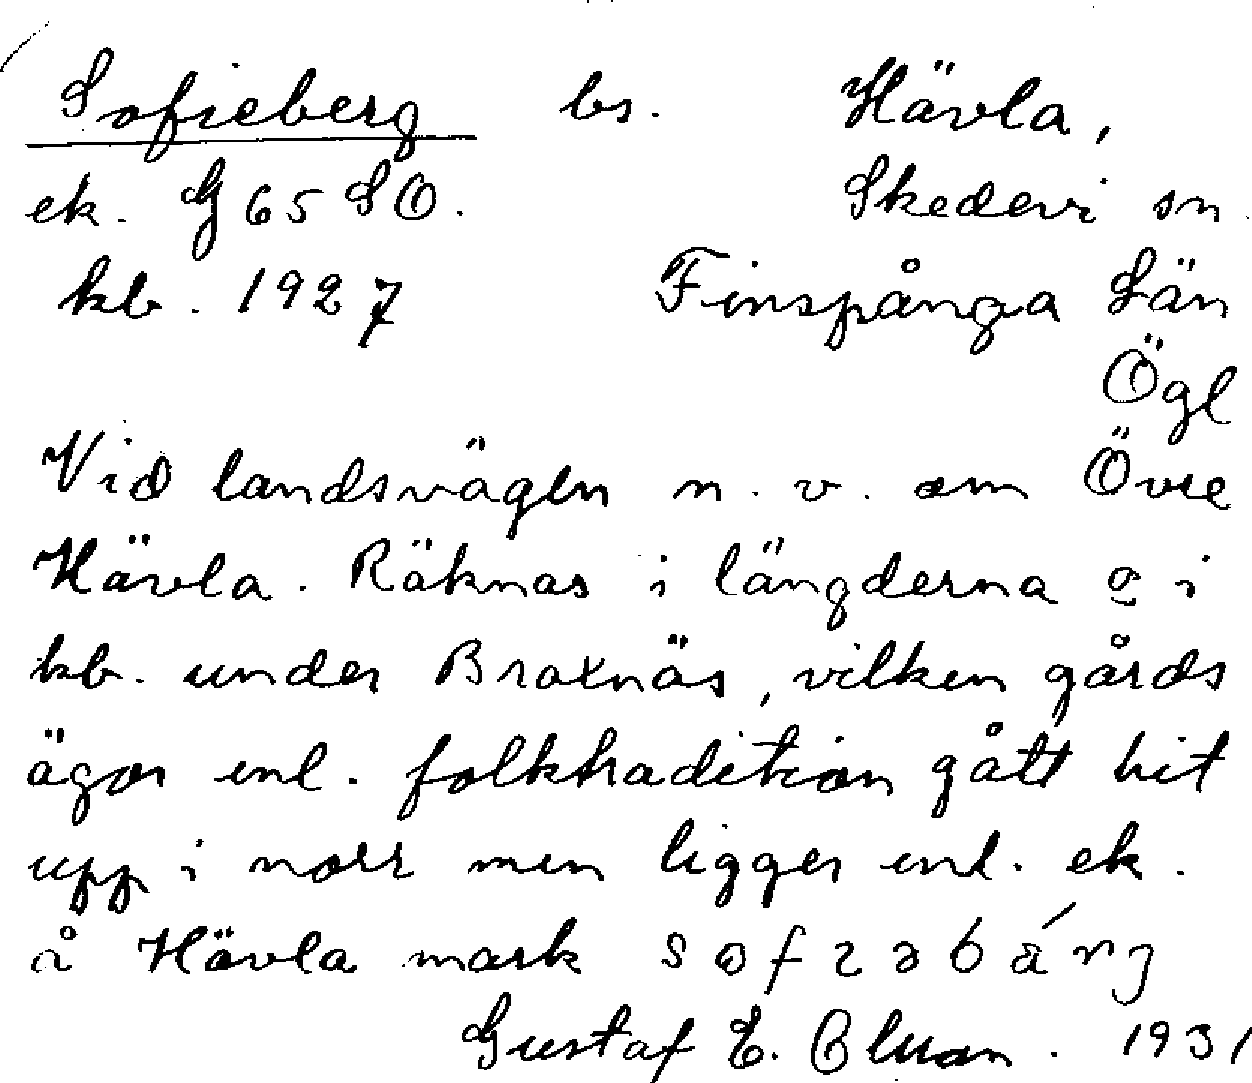 Sofieberg bs. Hävla,
ek. G 65 SO. Skedevi sn.
kb. 1927 Finspånga Län
Ögl
Vid landsvägen n. v. om Övre
Hävla. Räknas i längderna o i
kb. under Braxnäs, vilken gårds
ägor enl. folktradition gått hit
upp i norr men ligger enl. ek.
å Hävla mark
Gustaf E. 1931